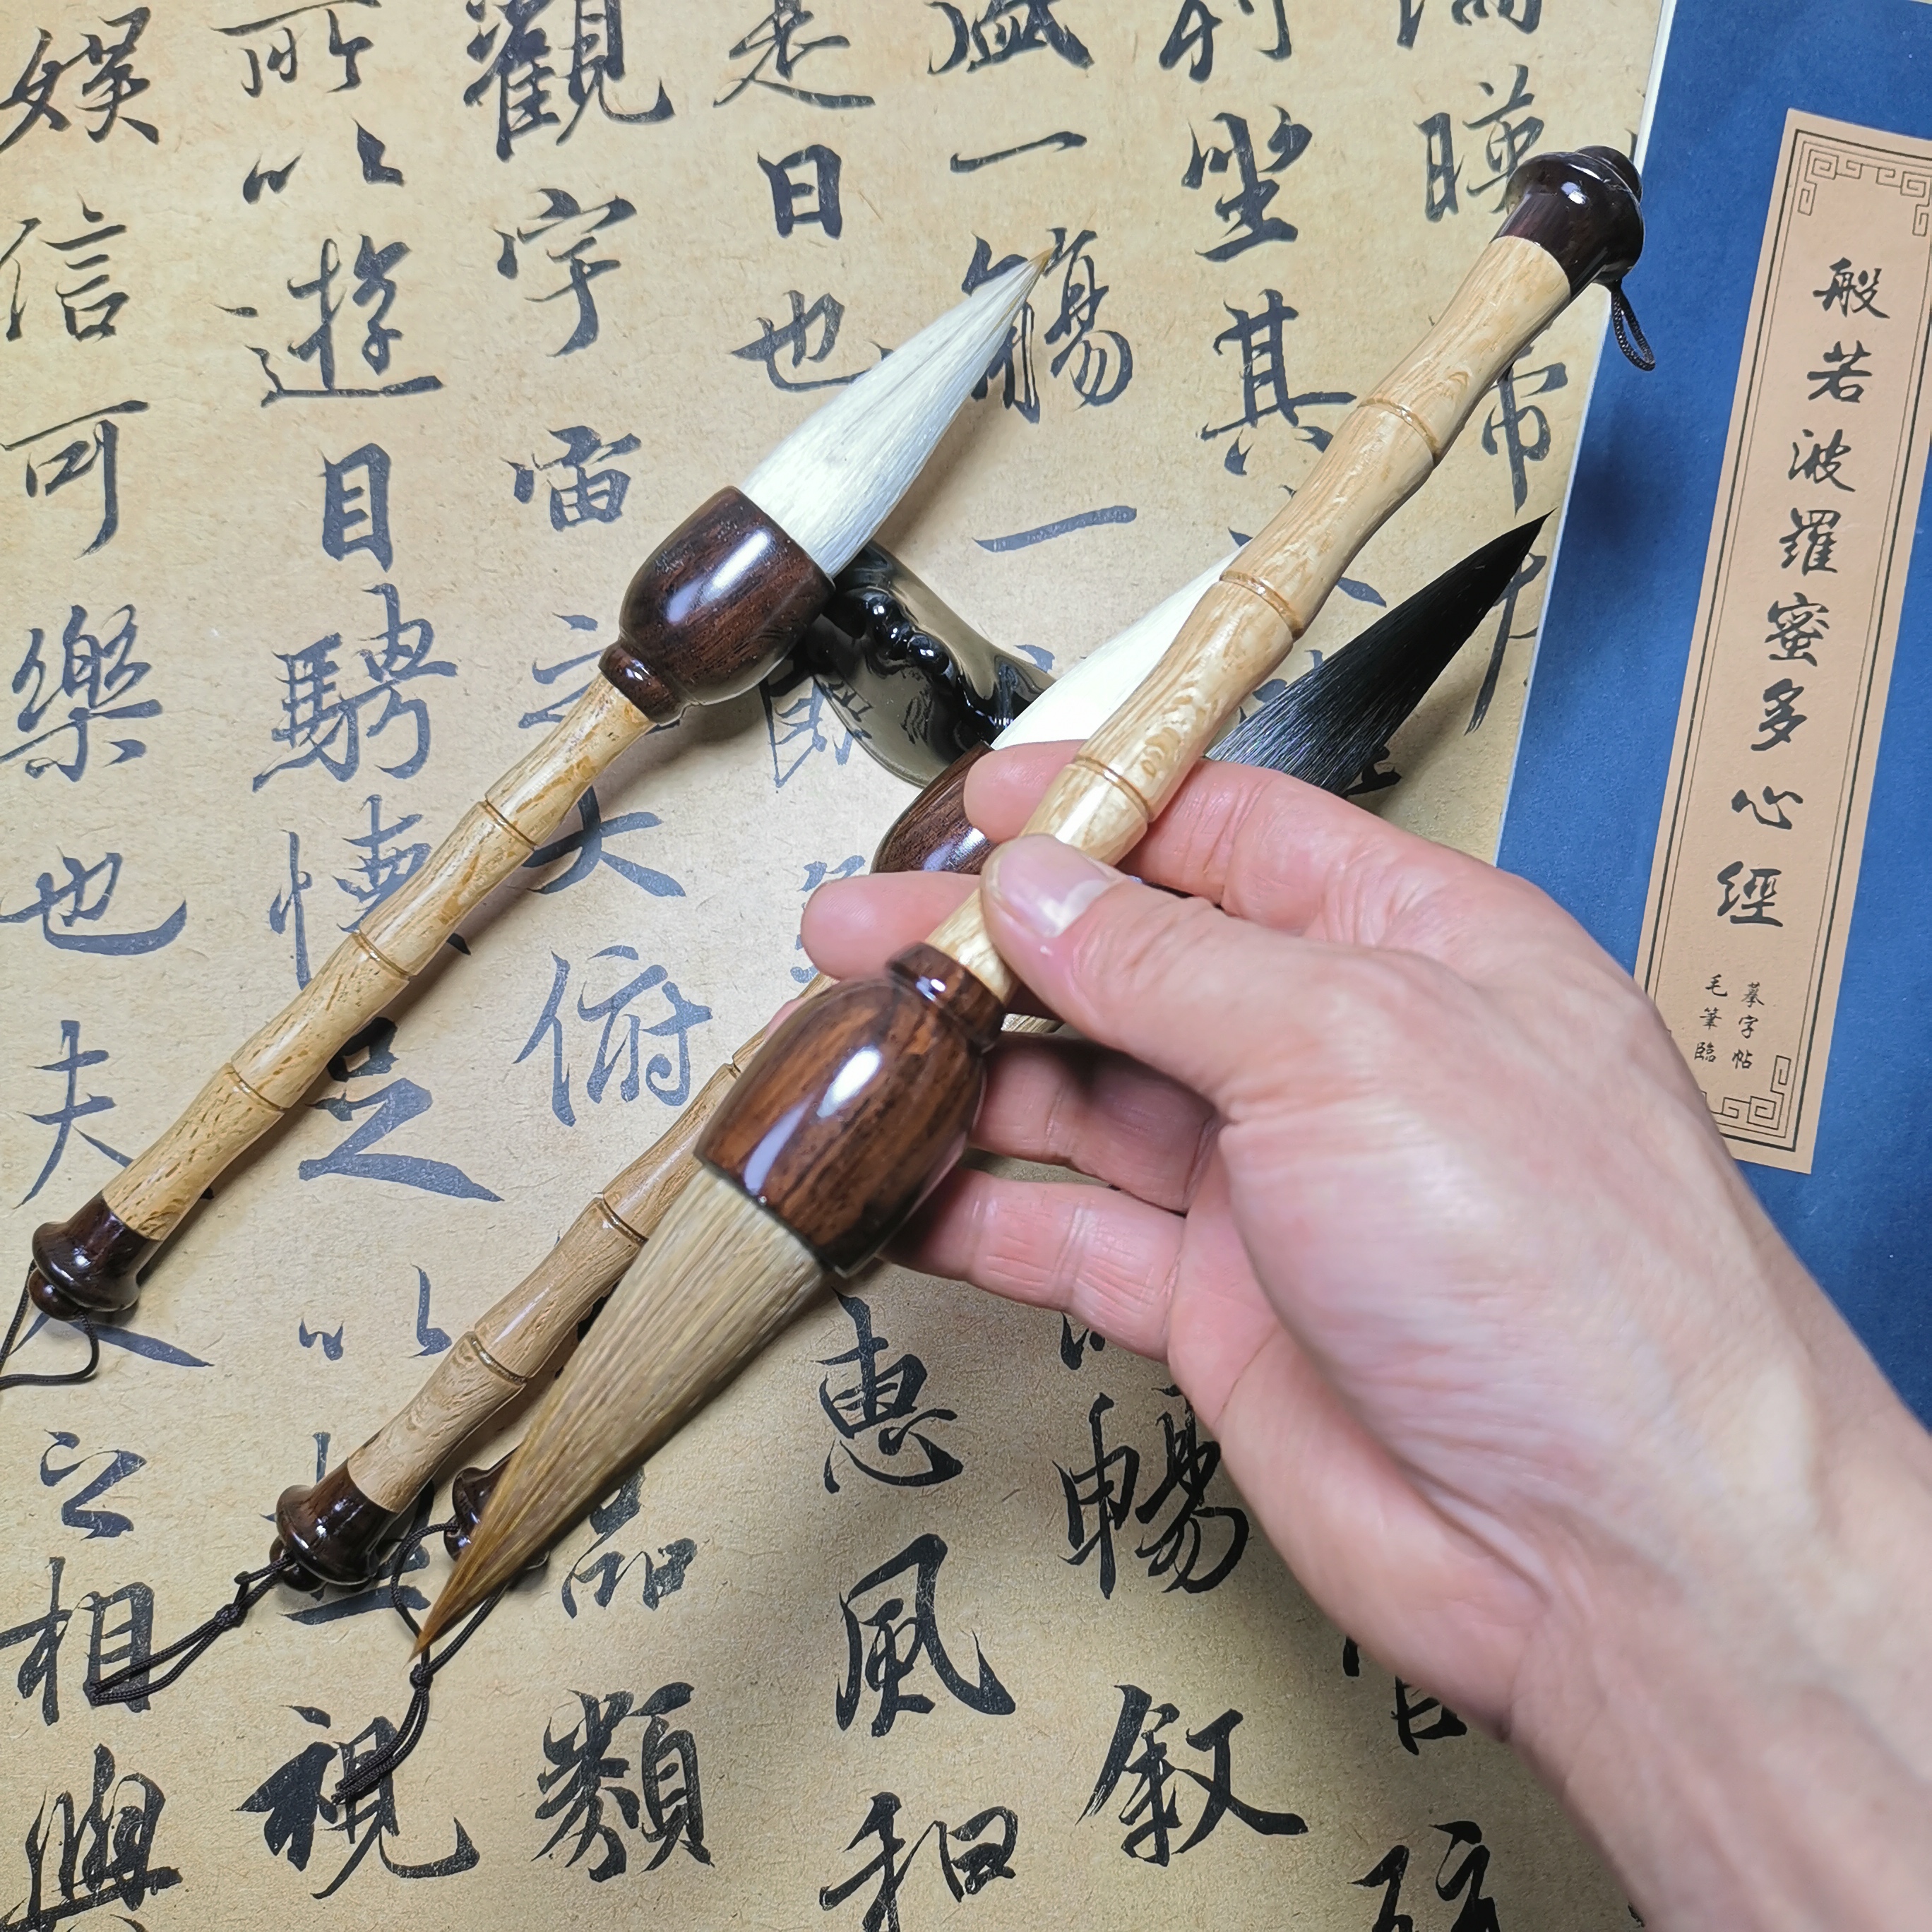 般若波羅蜜多心經
毛筆臨
摹字帖
湍暎帶
列坐其
盛一觴一暢叙
是日也朗惠風和
觀宇宙之大俯品類
所以遊目騁懷足以視
娛信可樂也夫人之相與